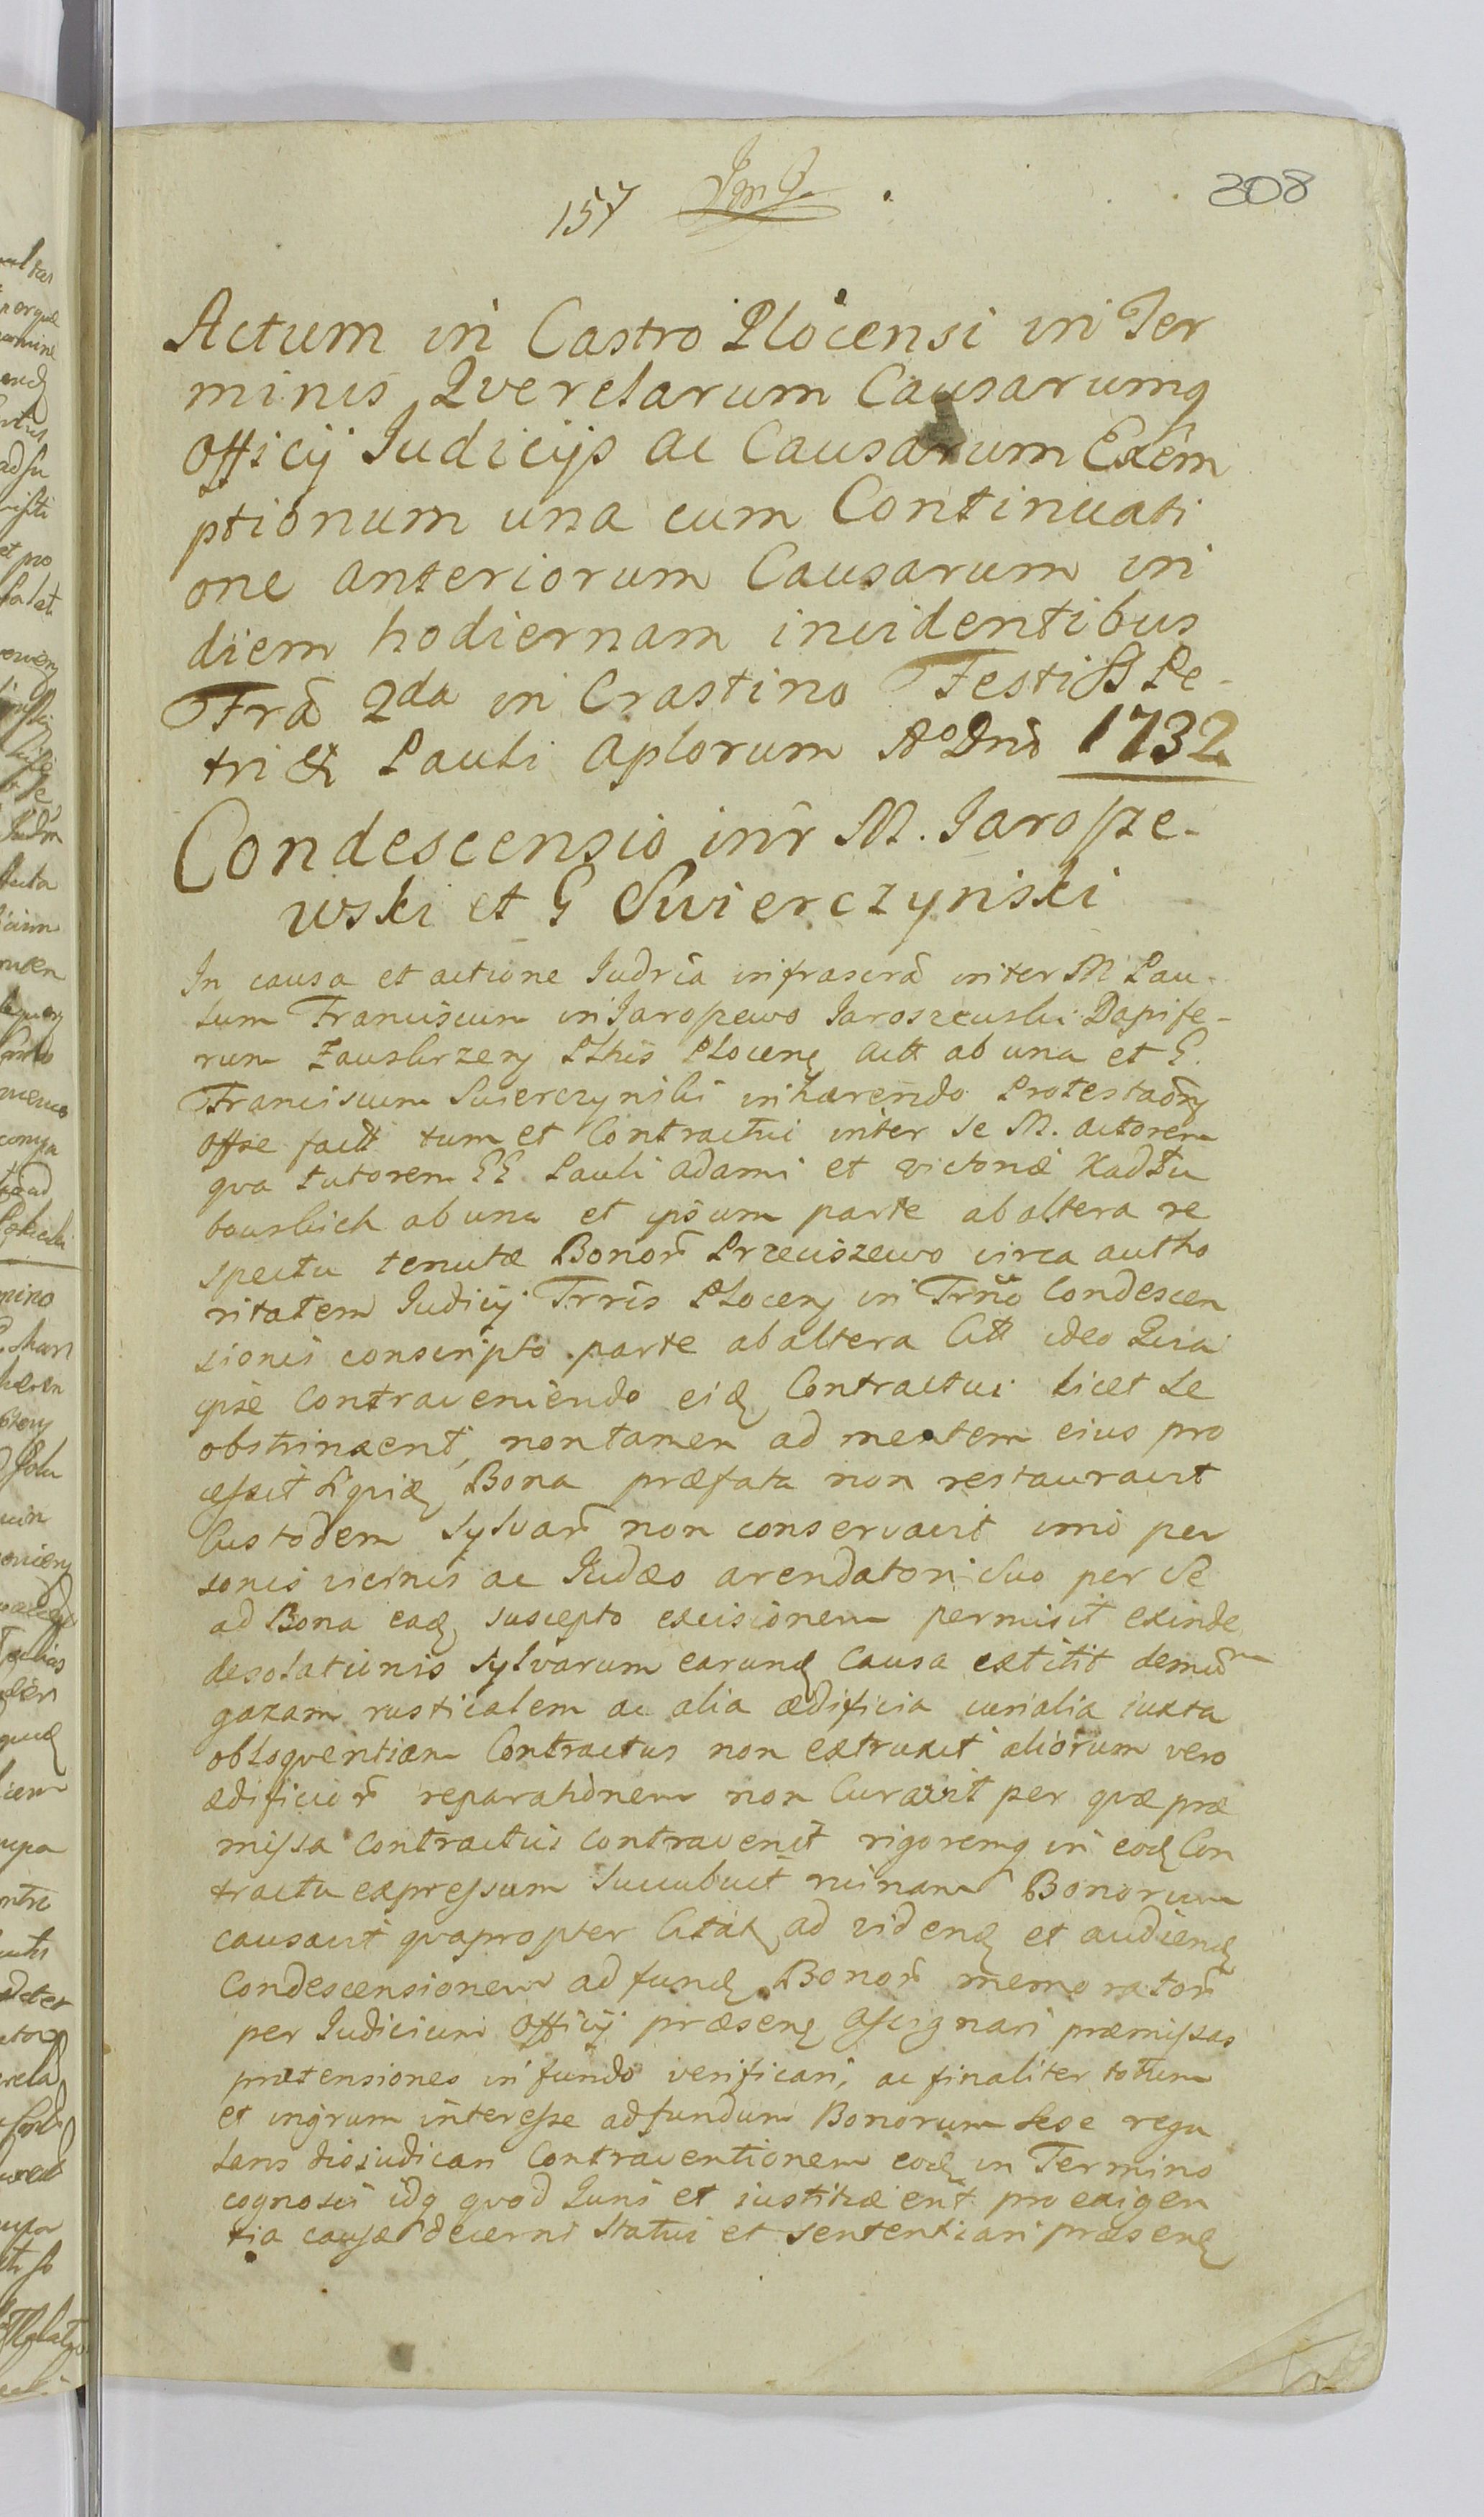 157
308
Actum in Castro Plocensi in Ter
minis Qverelarum Causarumq
officij Iudicijs ac Causarum Exem
ptionum una cum Continuati
one anteriorum Causarum in
diem hodiernam incidentibus
Fra 2da in Crastino Festi SS Pe-
tri & Pauli aplorum Ao Dni 1732
Condescensio inr M. Jarosze-
wski et G Swierczynski
In causa et actione Iudria infrascra inter M Pau-
lum Franciscum in Jaroszewo Jaroszewski Dapife-
rum Zauskrzen Plthis Plocenq Act ab una et G.
Franciscum Swierczynski inhærendo Protestaõnj
offse fact tum et Contractui inter se M. actorem
qva tutorem GG. Pauli adami et victoriæ
ab una et ipsum parte ab altera re
spectu tenutæ Bonor Przeciszewo circa autho
ritatem Iudicij Trris Plocen in Trno Condescen
sionis conscripto parte ab altera Citt ideo Quia
ipse Contraveniendo eidq Contractui licet se
obstrinxerit, non tamen ad mentem eius pro
cessit siquidq Bona præfata non restauravit
Custodem Sylvar non conservavit imo per
sonis vicinis ac Iudæo arendatori suo per se
ad Bona eadq suscepto excisionem permisit exinde
desolationis sylvarum earundq Causa extitit demum
gazam rusticalem ac alia ædificia curialia iuxta
obloqventiam Contractus non extruxit aliorum vero
ædificior reparationem non Curavit per qvæ præ
missa Contractui contravenit rigoremq in eodq Con
tractu expressum succubuit ruinam Bonorum
causavit qvapropter Citatq ad videndq et audiendq
Condescensionem ad fundq Bonor memorator
per Iudicium officij præsenq assignari præmissas
prætensiones in fundo verificari, ac finaliter totum
et ingrum interesse ad fundum Bonorum sese regu
lans diiudicari Contraventionem eodq in Termino
cognosci idq qvod Iuris et iustitiæ erit pro exigen
tia causæ decerni statui et sententiari præsenq